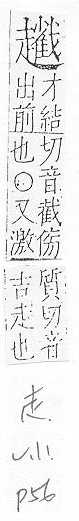 才結切音截傍
出前也○又激
質切音
吉走也
走.
P56